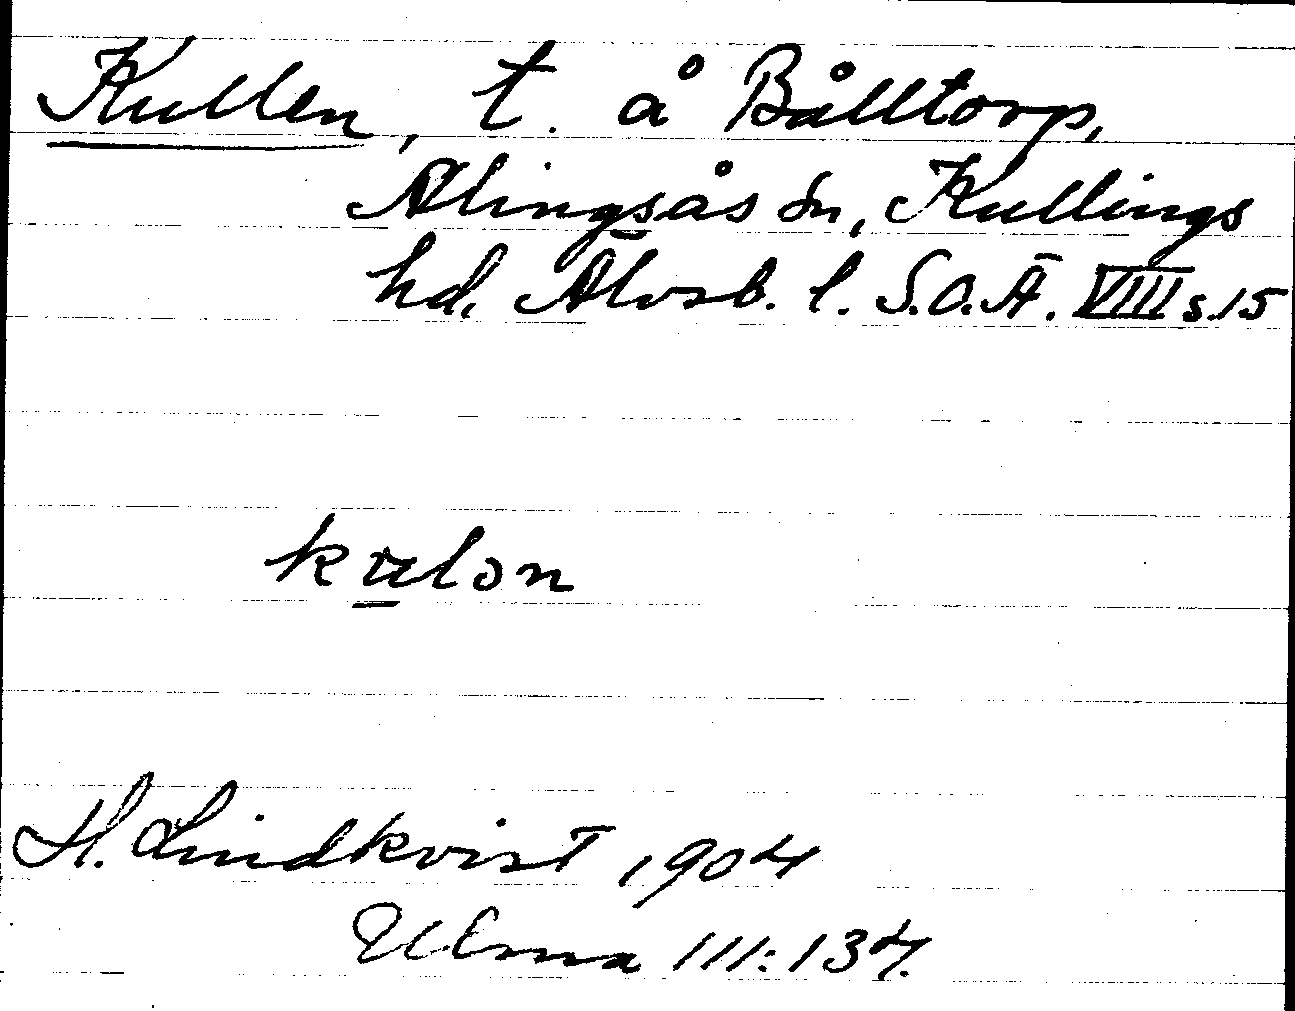 Kullen, t. å Bålltorp,
Alingsås sn, Kullings
hd, Älvsb. l. S.O.Ä. VIII s.15
kulɔn
H. Lindkvist 1904
Ulma 111:134.